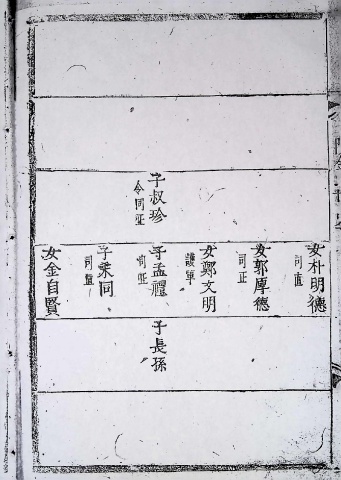 子叔珍
令同正
女朴明德
司直
女郭厚德
司正
女鄭文明
護軍
子孟禮
司正
子秉同
司直
女金自賢
子長孫